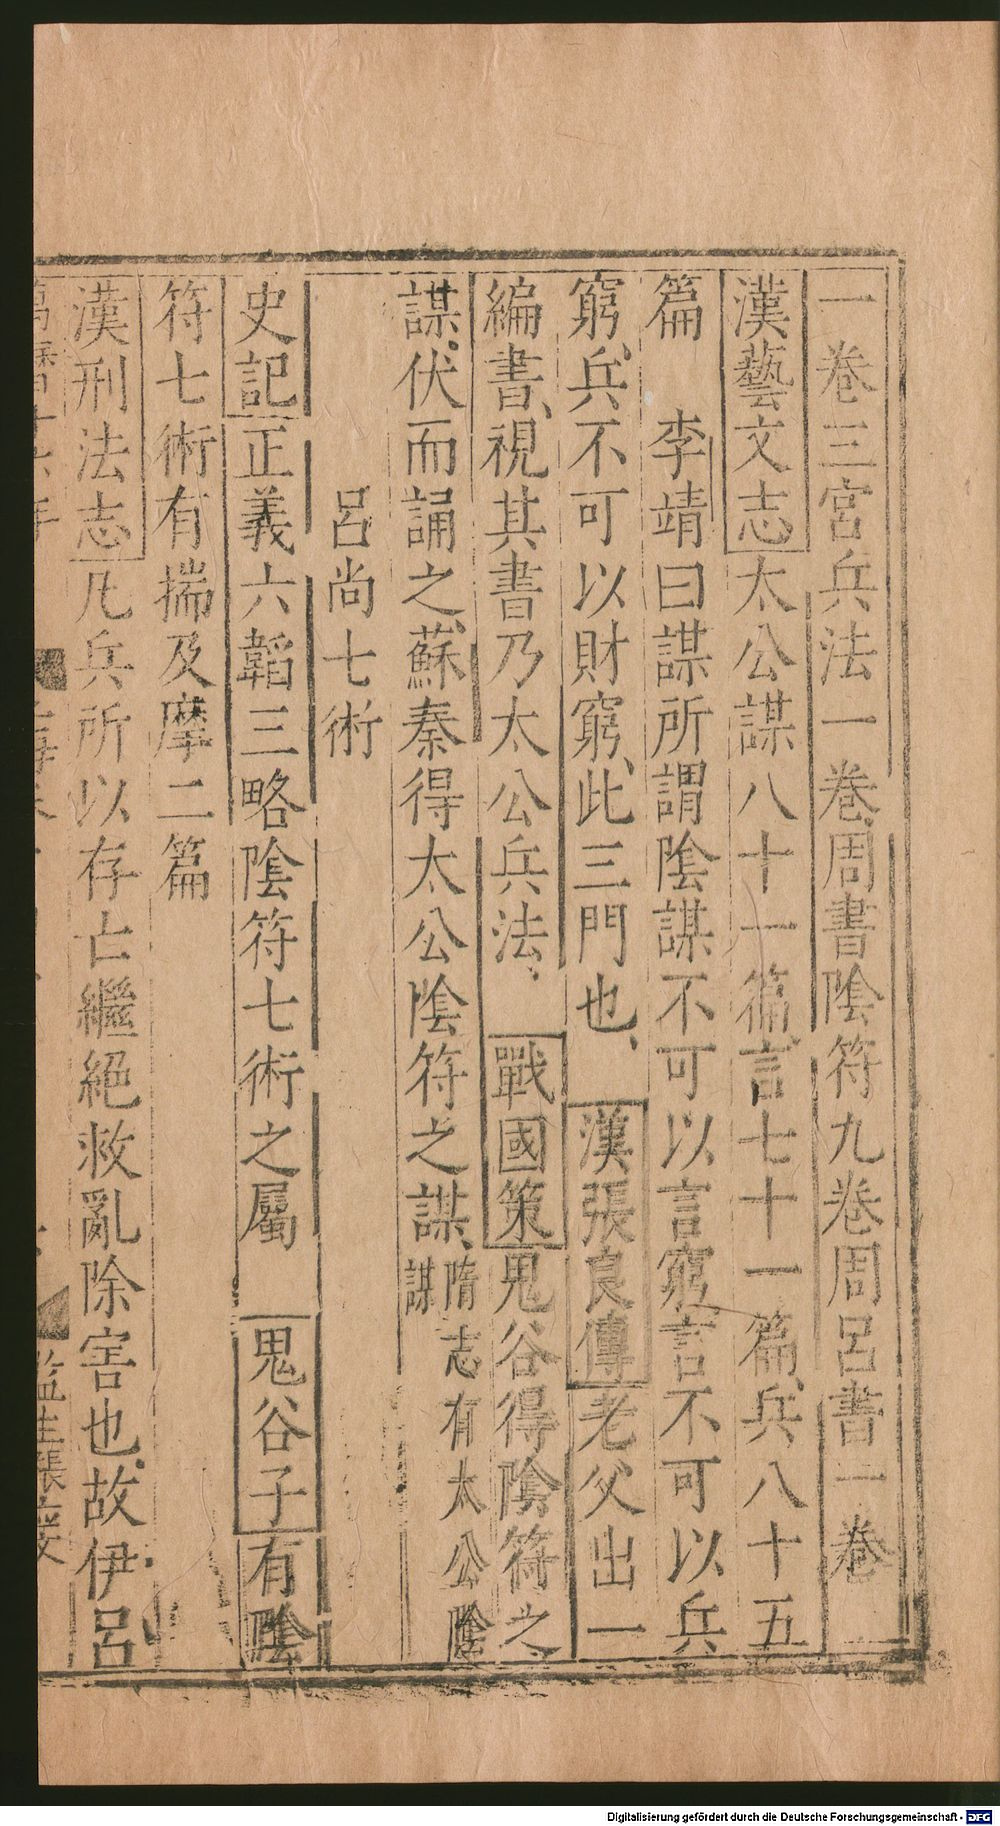 一卷三宮兵法一卷周書陰符九卷周呂書一卷
漢藝文志太公謀八十一篇言七十一篇兵八十五
篇　李靖曰謀所謂陰謀不可以言窮言不可以兵
窮兵不可以財窮此三門也、漢張良傳老父出一
編書、視其書乃太公兵法、戰國策鬼谷得陰符之
謀、伏而誦之蘇秦得太公陰符之謀、隋志有太公陰謀
呂尚七術
史記正義六韜三略陰符七術之屬　鬼谷子有陰
符七術有揣及摩二篇
漢刑法志凡兵所以存亡繼絕救亂除害也故伊呂
監生張
Digitalisierung gefördert durch die Deutsche Forschungsgemeinschaft - DFG